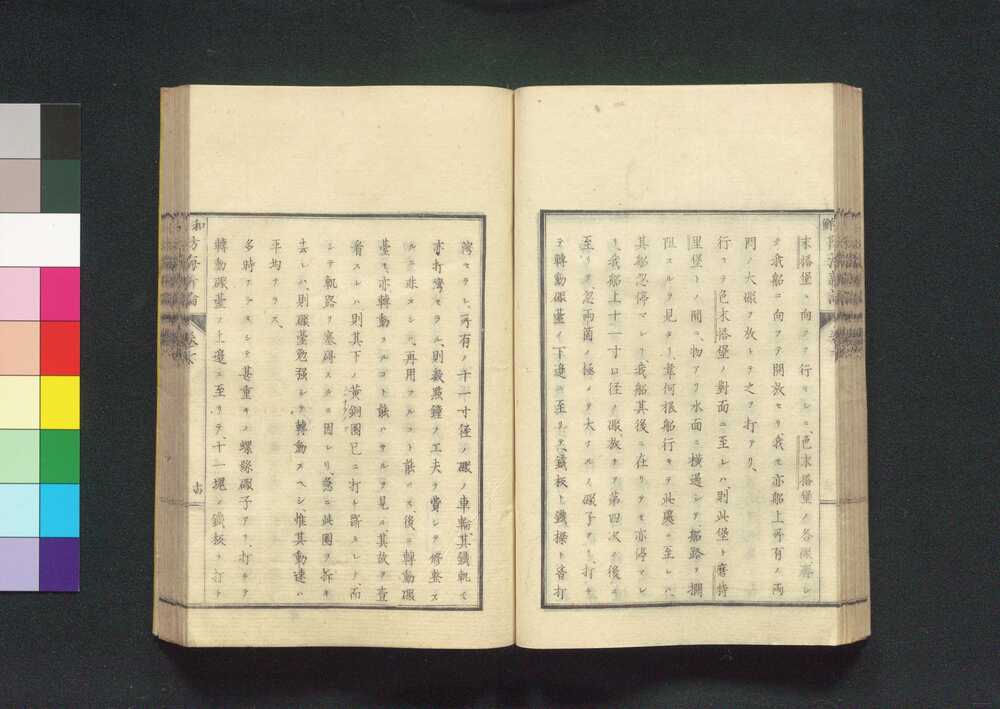 末搭堡ニ向フテ行リシニ、色末搭堡ノ各礟齊シ
ク我船ニ向フテ開放セリ我モ亦船上所有ノ兩
門ノ大礟ヲ放トテ之ヲ打アリ、
行テ色末搭堡ノ對面ニ至レハ則此堡ト磨特
里堡トノ間ニ、物アリ水面ニ横過シテ船路ヲ攔
阻スルヲ見タリ、韋何根船行キ此處ニ至レハ、
其船忽停マレリ、我船其後ニ在リテモ亦停マレ
リ、我船上十一寸口径ノ礟放ツ第四次ノ後ニ
至リテ、忽兩箇ノ極メテ大ナルノ礟子アリ、打キ
テ轉動礟臺ノ下邊ニ至リテ、鐵板ト鐵操ト皆打
灣セラレ、所有ノ十一寸径ノ礟ノ車輪、其鐵軌モ
亦打灣セラル、則數點鐘ノ工夫ヲ費シテ修整ス
ルニ非スンハ、再用フルコト能ハス後ニ轉動礟
臺モ亦轉動スルコト能ハサルヲ見ル、其故ヲ查
看スレハ則其下ノ黃銅圈已ニ打キ斷エレテ、而
シテ軌路ヲ塞碍スルニ因レリ、急ニ此圈ヲ拆キ
去レハ、則礟臺勉强シテ轉動スヘシ、惟其動速ハ
平均ナラス、
多時アラスシテ甚重キノ螺絲礟子アリ、打キテ
轉動礟臺ノ上邊ニ至リテ、十一塊ノ鐵板ヲ打ト